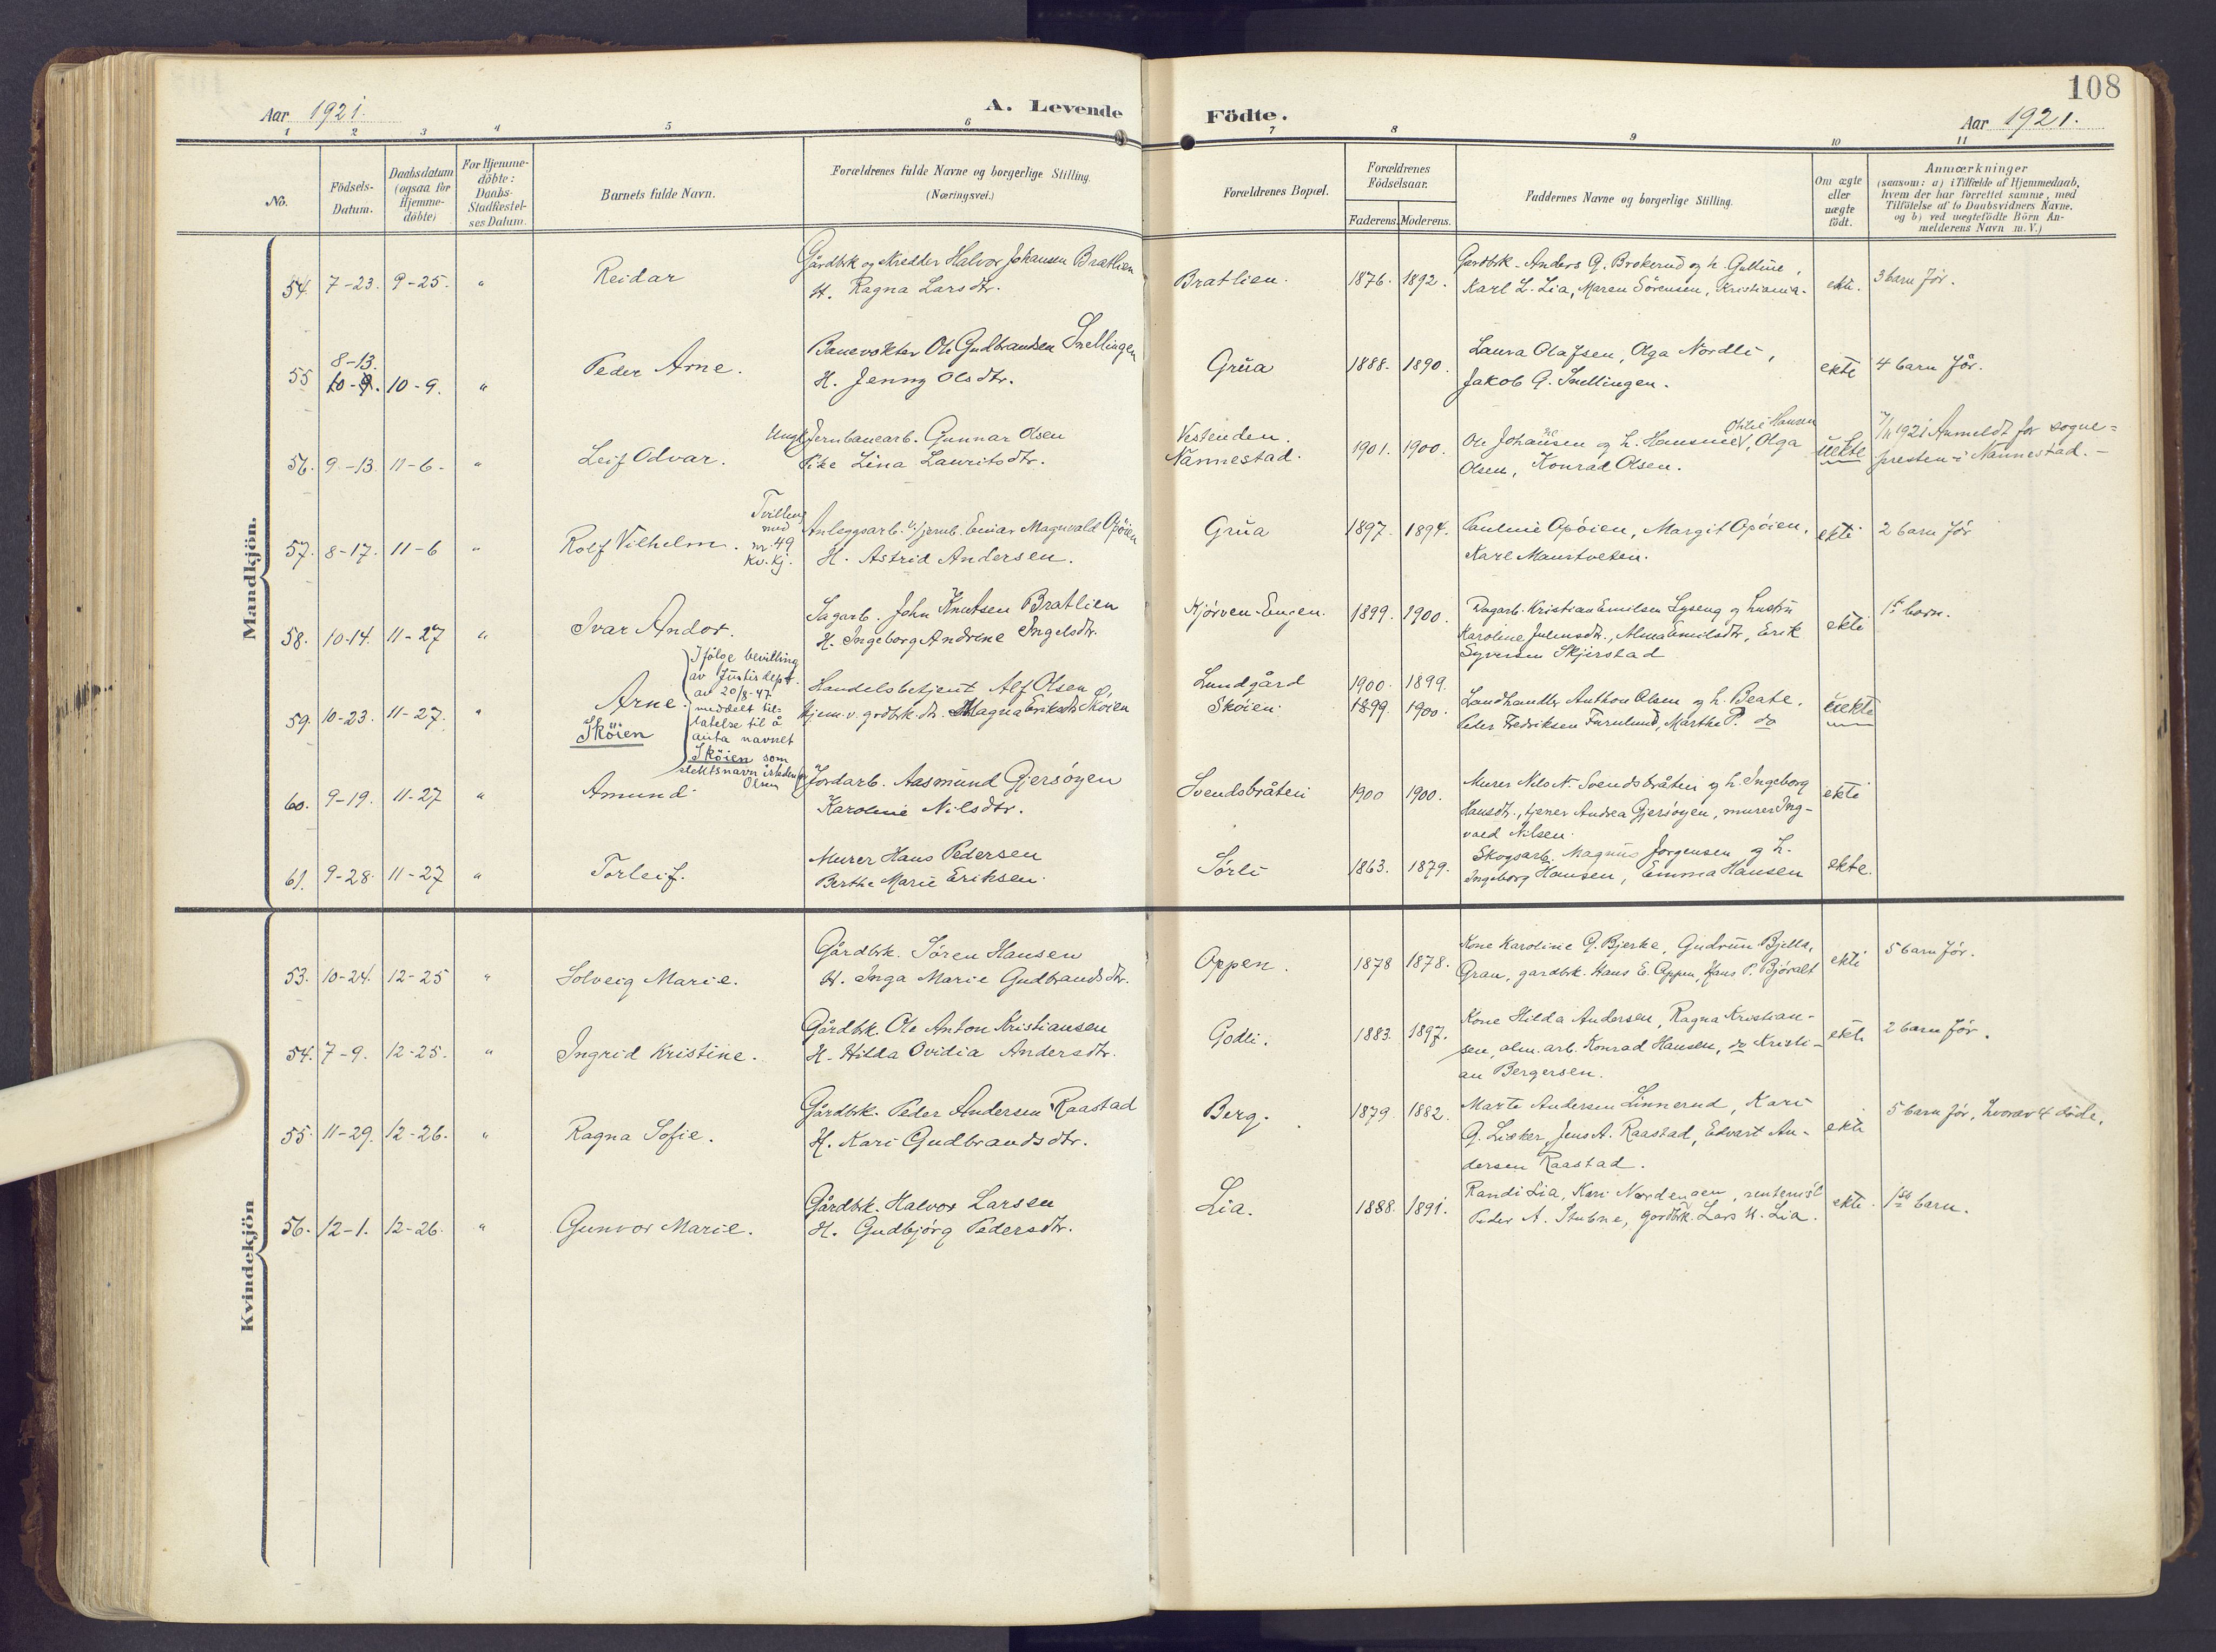 108
Aar 1921.
A. Levende
Födte.
Aar 1921.
1 2 3 4 5 6 7 8 9 10 11
No.
Födsels-
Datum.
Daabsdatum
(ogsaa for
Hjemme-
döbte)
For Hjemme-
döbte:
Daabs-
Stadfæstel-
ses Datum.
Barnets fulde Navn.
Forældrenes fulde Navne og borgerlige Stilling.
(Næringsvei.)
Forældrenes Bopæl.
Forældrenes
Födselsaar.
Faderens. Moderens.
Faddernes Navne og borgerlige Stilling.
Om ægte
eller
uægte
födt.
Anmærkninger
(saasom: a) i Tilfælde af Hjemmedaab,
hvem der har forrettet samme, med
Tilföielse af to Daabsvidners Navne.
og b) ved uægtefödte Börn An-
melderens Navn m. V.)
Mandkjön.
54. 7-23. 9-25. " Reidar
Gårdbrk og Halvor Johansen Bratlien
H. Ragna Larsdtr.
Bratlien. 1876. 1892.
Gardbrk. Anders G. Brokerud og h. Gulline,
Karl L. Lia, Maren Sörensen, Kristiania.
ekte. 3 barn för.
55 8-13. 10-9. 10-9. " Peder Arne.
Banevokter Ole Gudbrandsen Snellingen
H. Jenny Olsdtr.
Grua 1888. 1890.
Laura Olafsen, Olga Nordli,
Jakob G. Snellingen.
ekte 4 barn för.
56. 9-13. 11-6. " Leif Odvar.
Ungk. Jernbanearb. Gunnar Olsen
Pike Lina Lauritsdtr.
Vestenden.
Nannestad. 1901. 1900.
Othilie Hansen
Ole Johansen og h. Hansine, Olga
Olsen, Konrad Olsen.
uekte
7/11 1921 Anmeldt for sogne=
presten i Nannestad.-
57. 8-17. 11-6 " Rolf Vilhelm.
Tvilling
med
nr. 49
Kv. kj.
Anleggsarb. v/jernb. Einar Magnvald Opöien
H. Astrid Andersen.
Grua 1897. 1894.
Pauline Opöien, Margit Opöien,
Karl Maurtveten.
ekte 2 barn för
58. 10-14. 11-27 " Ivar Andor.
Sagarb. John Knutsen Bratlien
H. Ingeborg Andrine Ingelsdtr.
Kjörven-Engen. 1899. 1900.
Dagarb. Kristian Emilsen Lyseng og hustru
Karoline Juliusdtr., Alma Emilsdtr, Erik
Syversen Skjerstad
ekte 1st barn.
59. 10-23. 11-27. " Arne.
Sköien
Ifölge bevilling
av Justisdept.
av 20/8-47
meddelt til-
latelse til å
anta navnet
Sköien som
slektsnavn isteden for
Olsen
Handelsbetjent Alf Olsen og
hjem. v. grdbrk. dtr. Magna Eriksdtr Sköien
Lundgård 1900. 1899.
Sköien. 1899. 1900.
Landhandler Anthon Olsen og h. Beate.
Peder Fredriksen Furulund, Marthe P. do
uekte
60. 9-19. 11-27 " Amund
Jordarb. Aasmund Gjersöyen
Karoline Nilsdtr.
Svendsbråten 1900 1900.
Murer Nils N. Svendsbråten og h. Ingeborg
Hansdtr., tjener Andrea Gjersöyen, murer Ing-
vald Nilsen.
ekte
61. 9-28. 11-27 " Torleif.
Murer Hans Pedersen
Berthe Marie Eriksen.
Sörli 1863. 1879.
Skogsarb. Magnus Jörgensen og h.
Ingeborg Hansen, Emma Hansen
ekte.
Kvindekjön
53. 10-24. 12-25 " Solveig Marie.
Gårdbrk. Sören Hansen
H. Inga Marie Gudbrandsdtr.
Oppen. 1878 1878.
Kone Karoline G. Bjerke, Gudrun Bjella,
Gran, gardbrk. Hans E. Oppen, Hans P. Björalt
ekte 5 barn för.
54. 7-9. 12-25. " Ingrid Kristine.
Gårdbrk. Ole Anton Kristiansen
H. Hilda Ovidia Andersdtr.
Godli. 1883. 1897.
Kone Hilda Andersen, Ragna Kristian-
sen, alm. arb. Konrad Hansen, do Kristi-
an Bergersen.
ekte 2 barn för.
55. 11-29. 12-26. " Ragna Sofie.
Gårdbrk. Peder Andersen Raastad
H. Kari Gudbrandsdtr.
Berg. 1879. 1882.
Marte Andersen Linnerud, Kari
G. Lisker, Jens A. Raastad, Edvart An-
dersen Raastad.
ekte 5 barn för, hvorav 4 döde.
56. 12-1. 12-26. " Gunvor Marie.
Gårdbrk. Halvor Larsen
H. Gudbjörg Pedersdtr.
Lia. 1888. 1891.
Randi Lia, Kari Nordengen,
Peder A. Stubne, gardbrk. Lars H. Lia.
ekte. 1ste barn.